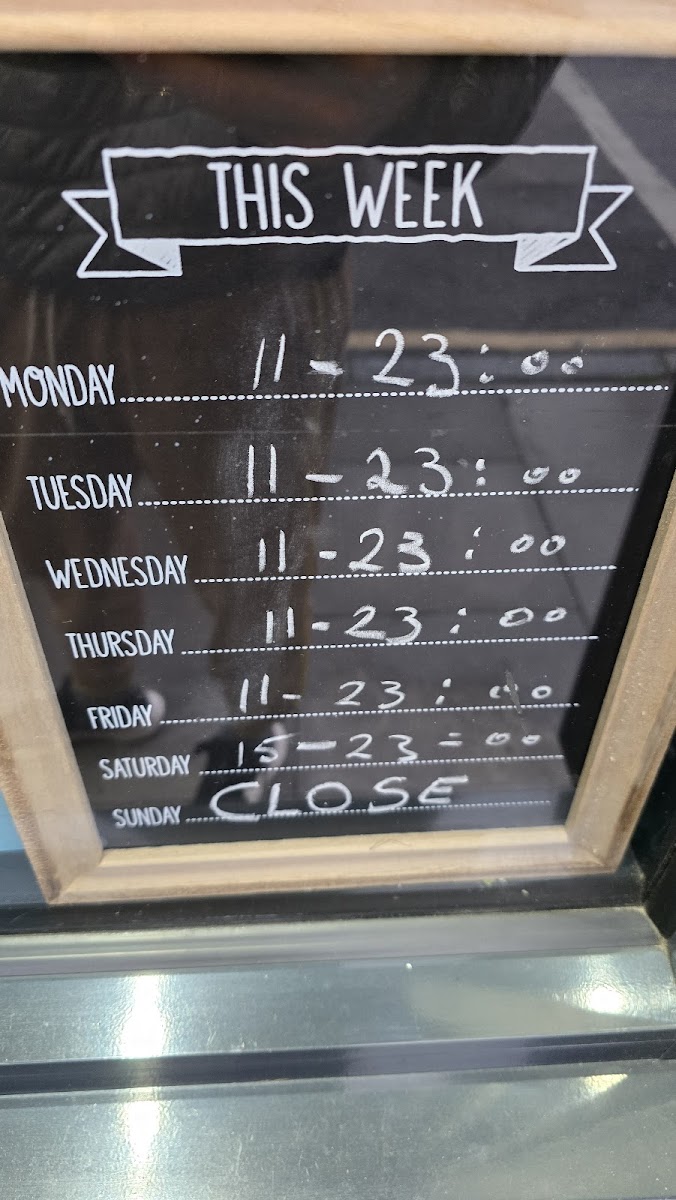 THIS WEEK
MONDAY 11 - 23 : 00
TUESDAY 11 - 23 : 00
WEDNESDAY 11 - 23 : 00
THURSDAY 11 - 23 : 00
FRIDAY 11 - 23 : 00
SATURDAY 15 - 23 = 00
SUNDAY CLOSE